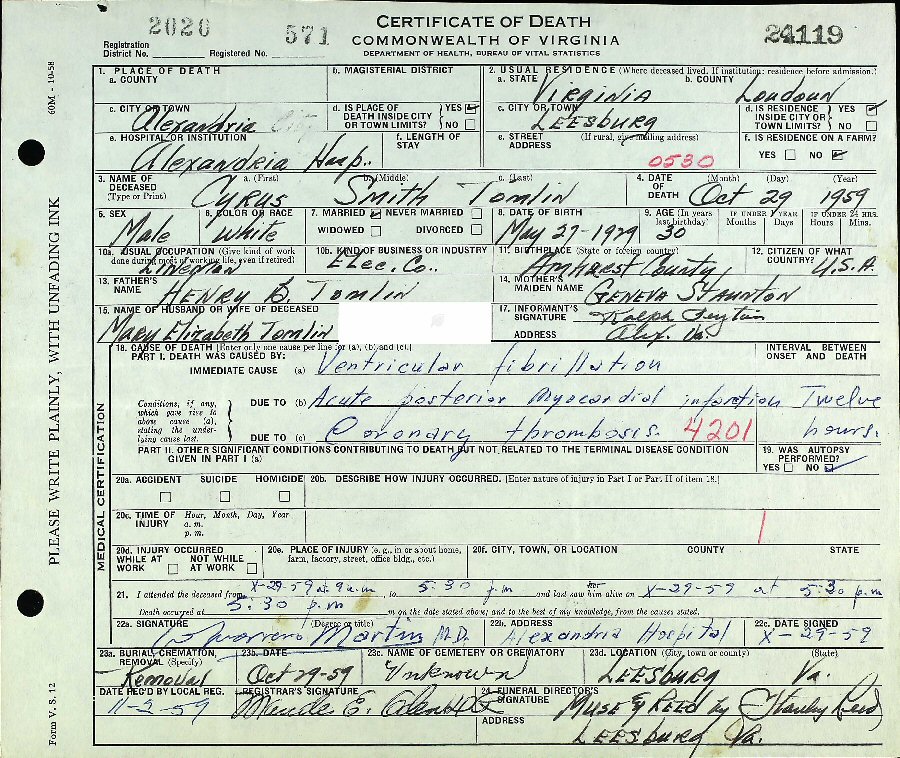 2020 571 24119
CERTIFICATE OF DEATH
COMMONWEALTH OF VIRGINIA
DEPARTMENT OF HEALTH, BUREAU OF VITAL STATISTICS
Registration District No. Registered No.
60M - 10-58
PLEASE WRITE PLAINLY, WITH UNFADING INK
Form V. S. 12
1. PLACE OF DEATH
a. COUNTY
b. MAGISTERIAL DISTRICT
2. USUAL RESIDENCE (Where deceased lived. If institution: residence before admission.)
a. STATE Virginia b. COUNTY Loudoun
c. CITY OR TOWN Alexandria City
d. IS PLACE OF DEATH INSIDE CITY OR TOWN LIMITS? YES NO
c. CITY OR TOWN LEESBURG
d. IS RESIDENCE INSIDE CITY OR TOWN LIMITS? YES NO
e. HOSPITAL OR INSTITUTION Alexandria Hosp.
f. LENGTH OF STAY
e. STREET ADDRESS (If rural, give mailing address)
0530
f. IS RESIDENCE ON A FARM? YES NO
3. NAME OF DECEASED (Type or Print) a. (First) b. (Middle) c. (Last)
Cyrus Smith Tomlin
4. DATE OF DEATH (Month) (Day) (Year)
Oct 29 1959
5. SEX Male
6. COLOR OR RACE White
7. MARRIED NEVER MARRIED WIDOWED DIVORCED
8. DATE OF BIRTH May 27-1929
9. AGE (In years last birthday) 30
IF UNDER 1 YEAR Months Days
IF UNDER 24 HRS. Hours Mins.
10a. USUAL OCCUPATION (Give kind of work done during most of working life, even if retired) Lineman
10b. KIND OF BUSINESS OR INDUSTRY Elec. Co.
11. BIRTHPLACE (State or foreign country) Amherst County
12. CITIZEN OF WHAT COUNTRY? U.S.A.
13. FATHER'S NAME Henry B. Tomlin
14. MOTHER'S MAIDEN NAME Geneva Staunton
15. NAME OF HUSBAND OR WIFE OF DECEASED
Mary Elizabeth Tomlin
17. INFORMANT'S SIGNATURE Ralph
ADDRESS Alex. Va.
MEDICAL CERTIFICATION
18. CAUSE OF DEATH [Enter only one cause per line for (a), (b) and (c).]
INTERVAL BETWEEN ONSET AND DEATH
PART I. DEATH WAS CAUSED BY:
IMMEDIATE CAUSE (a) Ventricular fibrillation
Conditions, if any, which gave rise to above cause (a), stating the underlying cause last.
DUE TO (b) Acute posterior myocardial infarction Twelve hours.
DUE TO (c) Coronary thrombosis. 4201
PART II. OTHER SIGNIFICANT CONDITIONS CONTRIBUTING TO DEATH BUT NOT RELATED TO THE TERMINAL DISEASE CONDITION GIVEN IN PART I (a)
19. WAS AUTOPSY PERFORMED? YES NO
20a. ACCIDENT SUICIDE HOMICIDE
20b. DESCRIBE HOW INJURY OCCURRED. [Enter nature of injury in Part I or Part II of item 18.]
20c. TIME OF INJURY Hour, Month, Day, Year a. m. p. m.
20d. INJURY OCCURRED WHILE AT WORK NOT WHILE AT WORK
20e. PLACE OF INJURY (e. g., in or about home, farm, factory, street, office bldg., etc.)
20f. CITY, TOWN, OR LOCATION COUNTY STATE
21. I attended the deceased from X-29-59 at 9 a.m, to 5:30 p.m and last saw him alive on X-29-59 at 5:30 p.m
Death occurred at 5:30 p.m m on the date stated above; and to the best of my knowledge, from the causes stated.
22a. SIGNATURE (Degree or title) Martin M.D.
22b. ADDRESS Alexandria Hospital
22c. DATE SIGNED X-29-59
23a. BURIAL, CREMATION, REMOVAL (Specify) Removal
23b. DATE Oct 29-59
23c. NAME OF CEMETERY OR CREMATORY Unknown
23d. LOCATION (City, town or county) (State) LEESBURG Va.
DATE REC'D BY LOCAL REG. 11-2-59
REGISTRAR'S SIGNATURE Maude E.
24. FUNERAL DIRECTOR'S SIGNATURE Muse & Reed by Stanley Reed
ADDRESS LEESBURG Va.